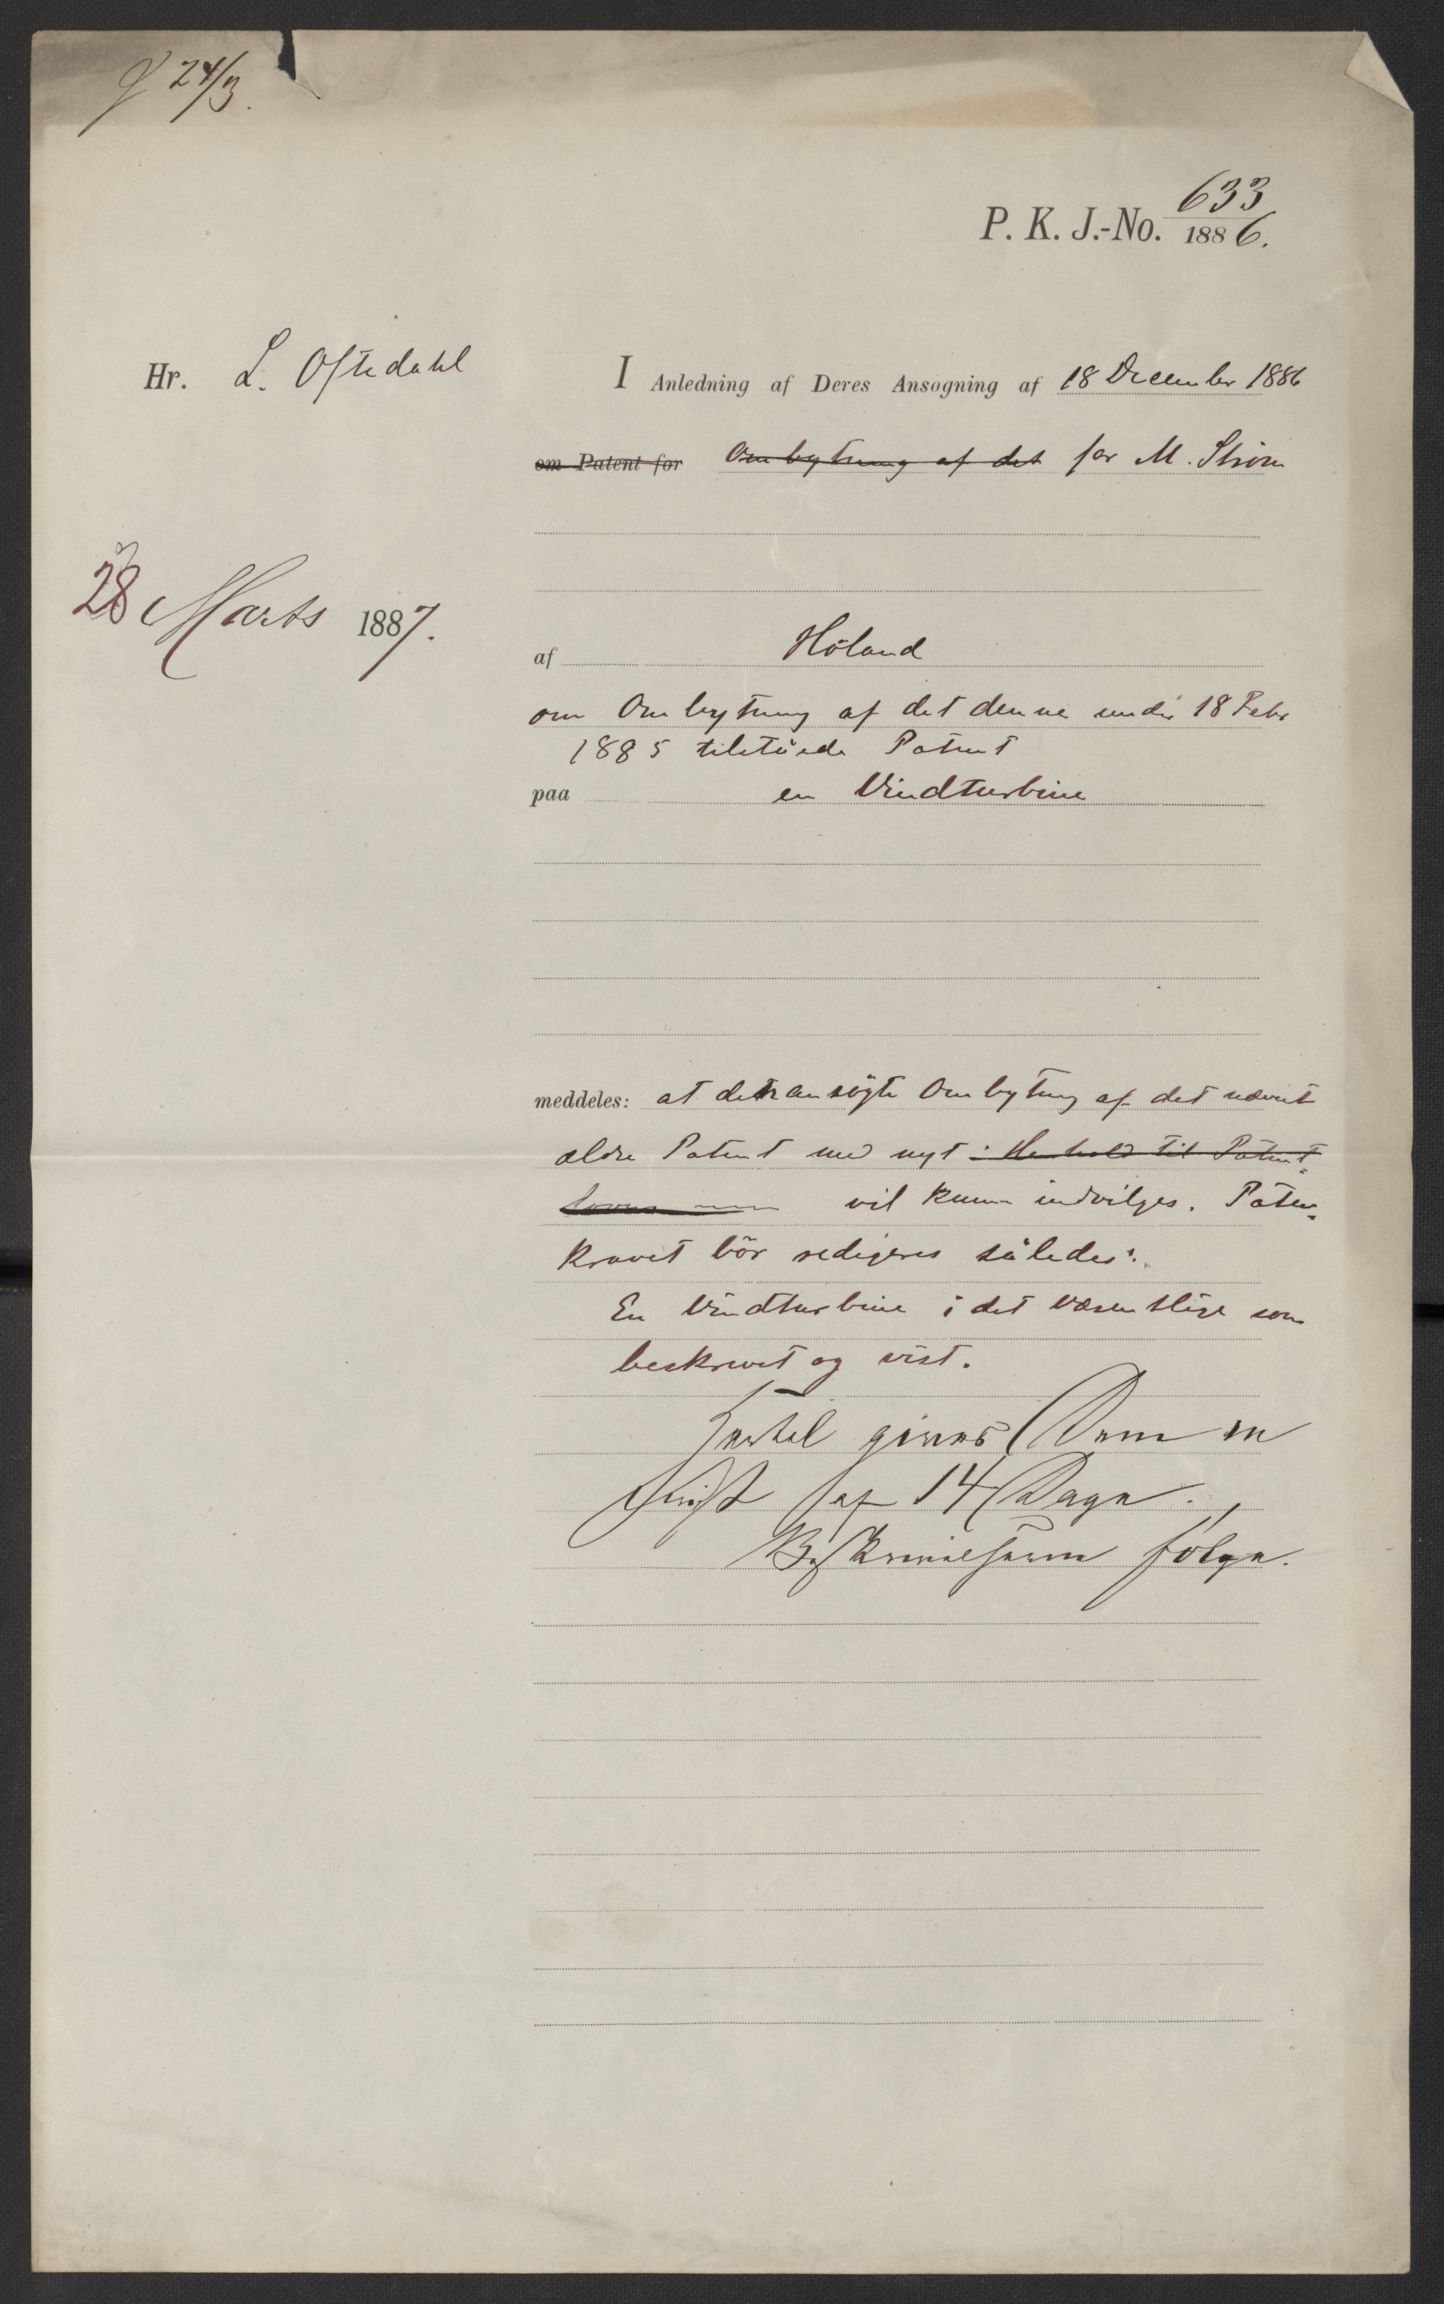 24/3.
P. K. J.-No. 633/1886.
Hr. L. Oftedahl
I Anledning af Deres Ansøgning af 18 December 1886
om Patent for Ombytning af det for M. Strøm
28 Marts 1887.
af Höland
om Ombytning af det denne under 18 Febr
1885 tilståede Patent
paa en Vindturbine
meddeles: at den ansögte Ombytning af det nævnte
ældre Patent med nyt i Henhold til Patent-
lovens vil kunne indvilges. Paten-
kravet bör redigeres således:
En Vindturbine i det væsentlige som
beskrevet og vist.
Hertil gives Dem en
Frist af 14 Dage.
Beskrivelserne følge.